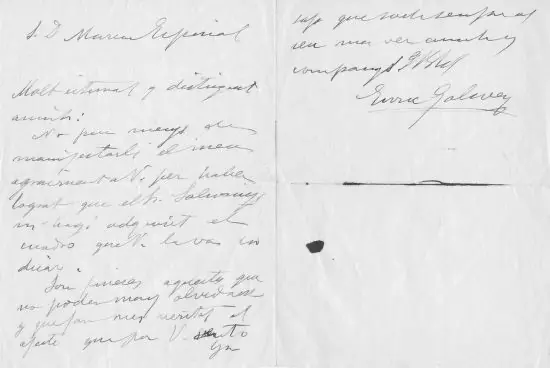 S. D Marian Espinal
Molt estimat y distingit
amich:
No puc menys de
manifestarli el meu
agraiment a V. per haber
lograt que el Sr. Salvanys
m-hagi adquirit el
cuadro que V. li va in
dicar.
Son fineses aquestes que
no poden may olvidarse
y que fan mes veritat el
afecte que per V. sento
Ya
sap que
seu mes ver amich y
company
Enric Galwey